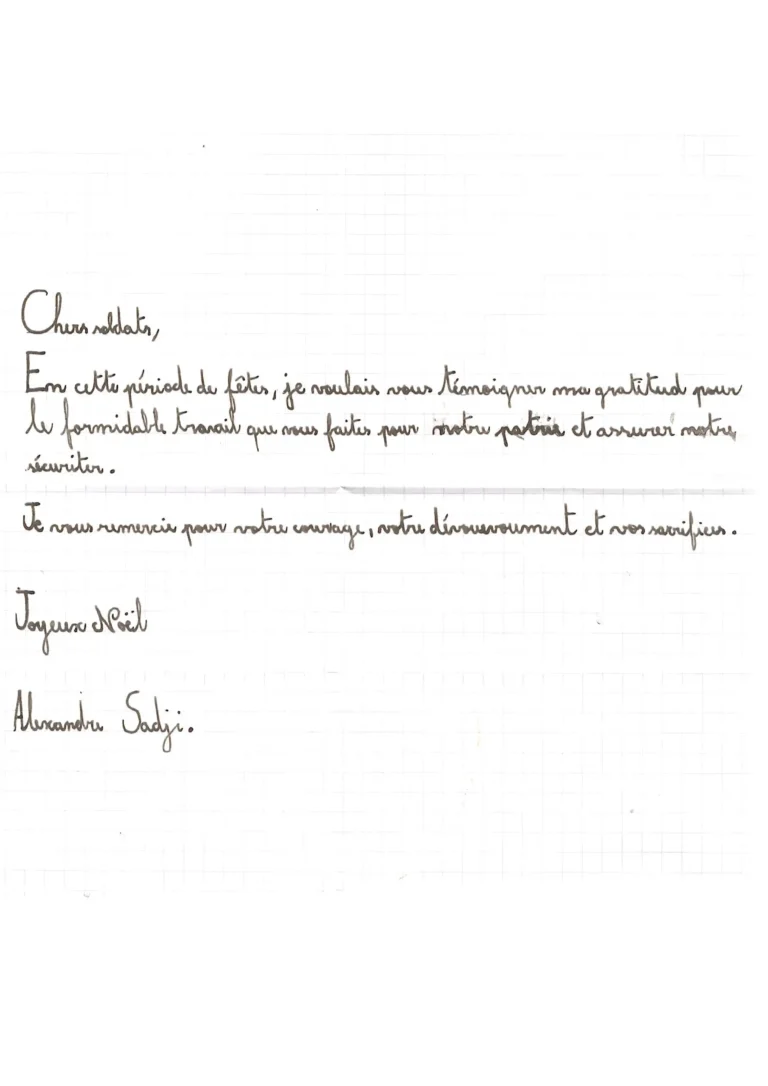 Chers soldats,
En cette période de fêtes, je voulais vous témoigner ma gratitud pour
le formidable travail que vous faites pour notre patrie et assurer notre
sécuriter.
Je vous remercie pour votre courage, votre dévouevoument et vos sacrifices.
Joyeux Noël
Alexandre Sadji.